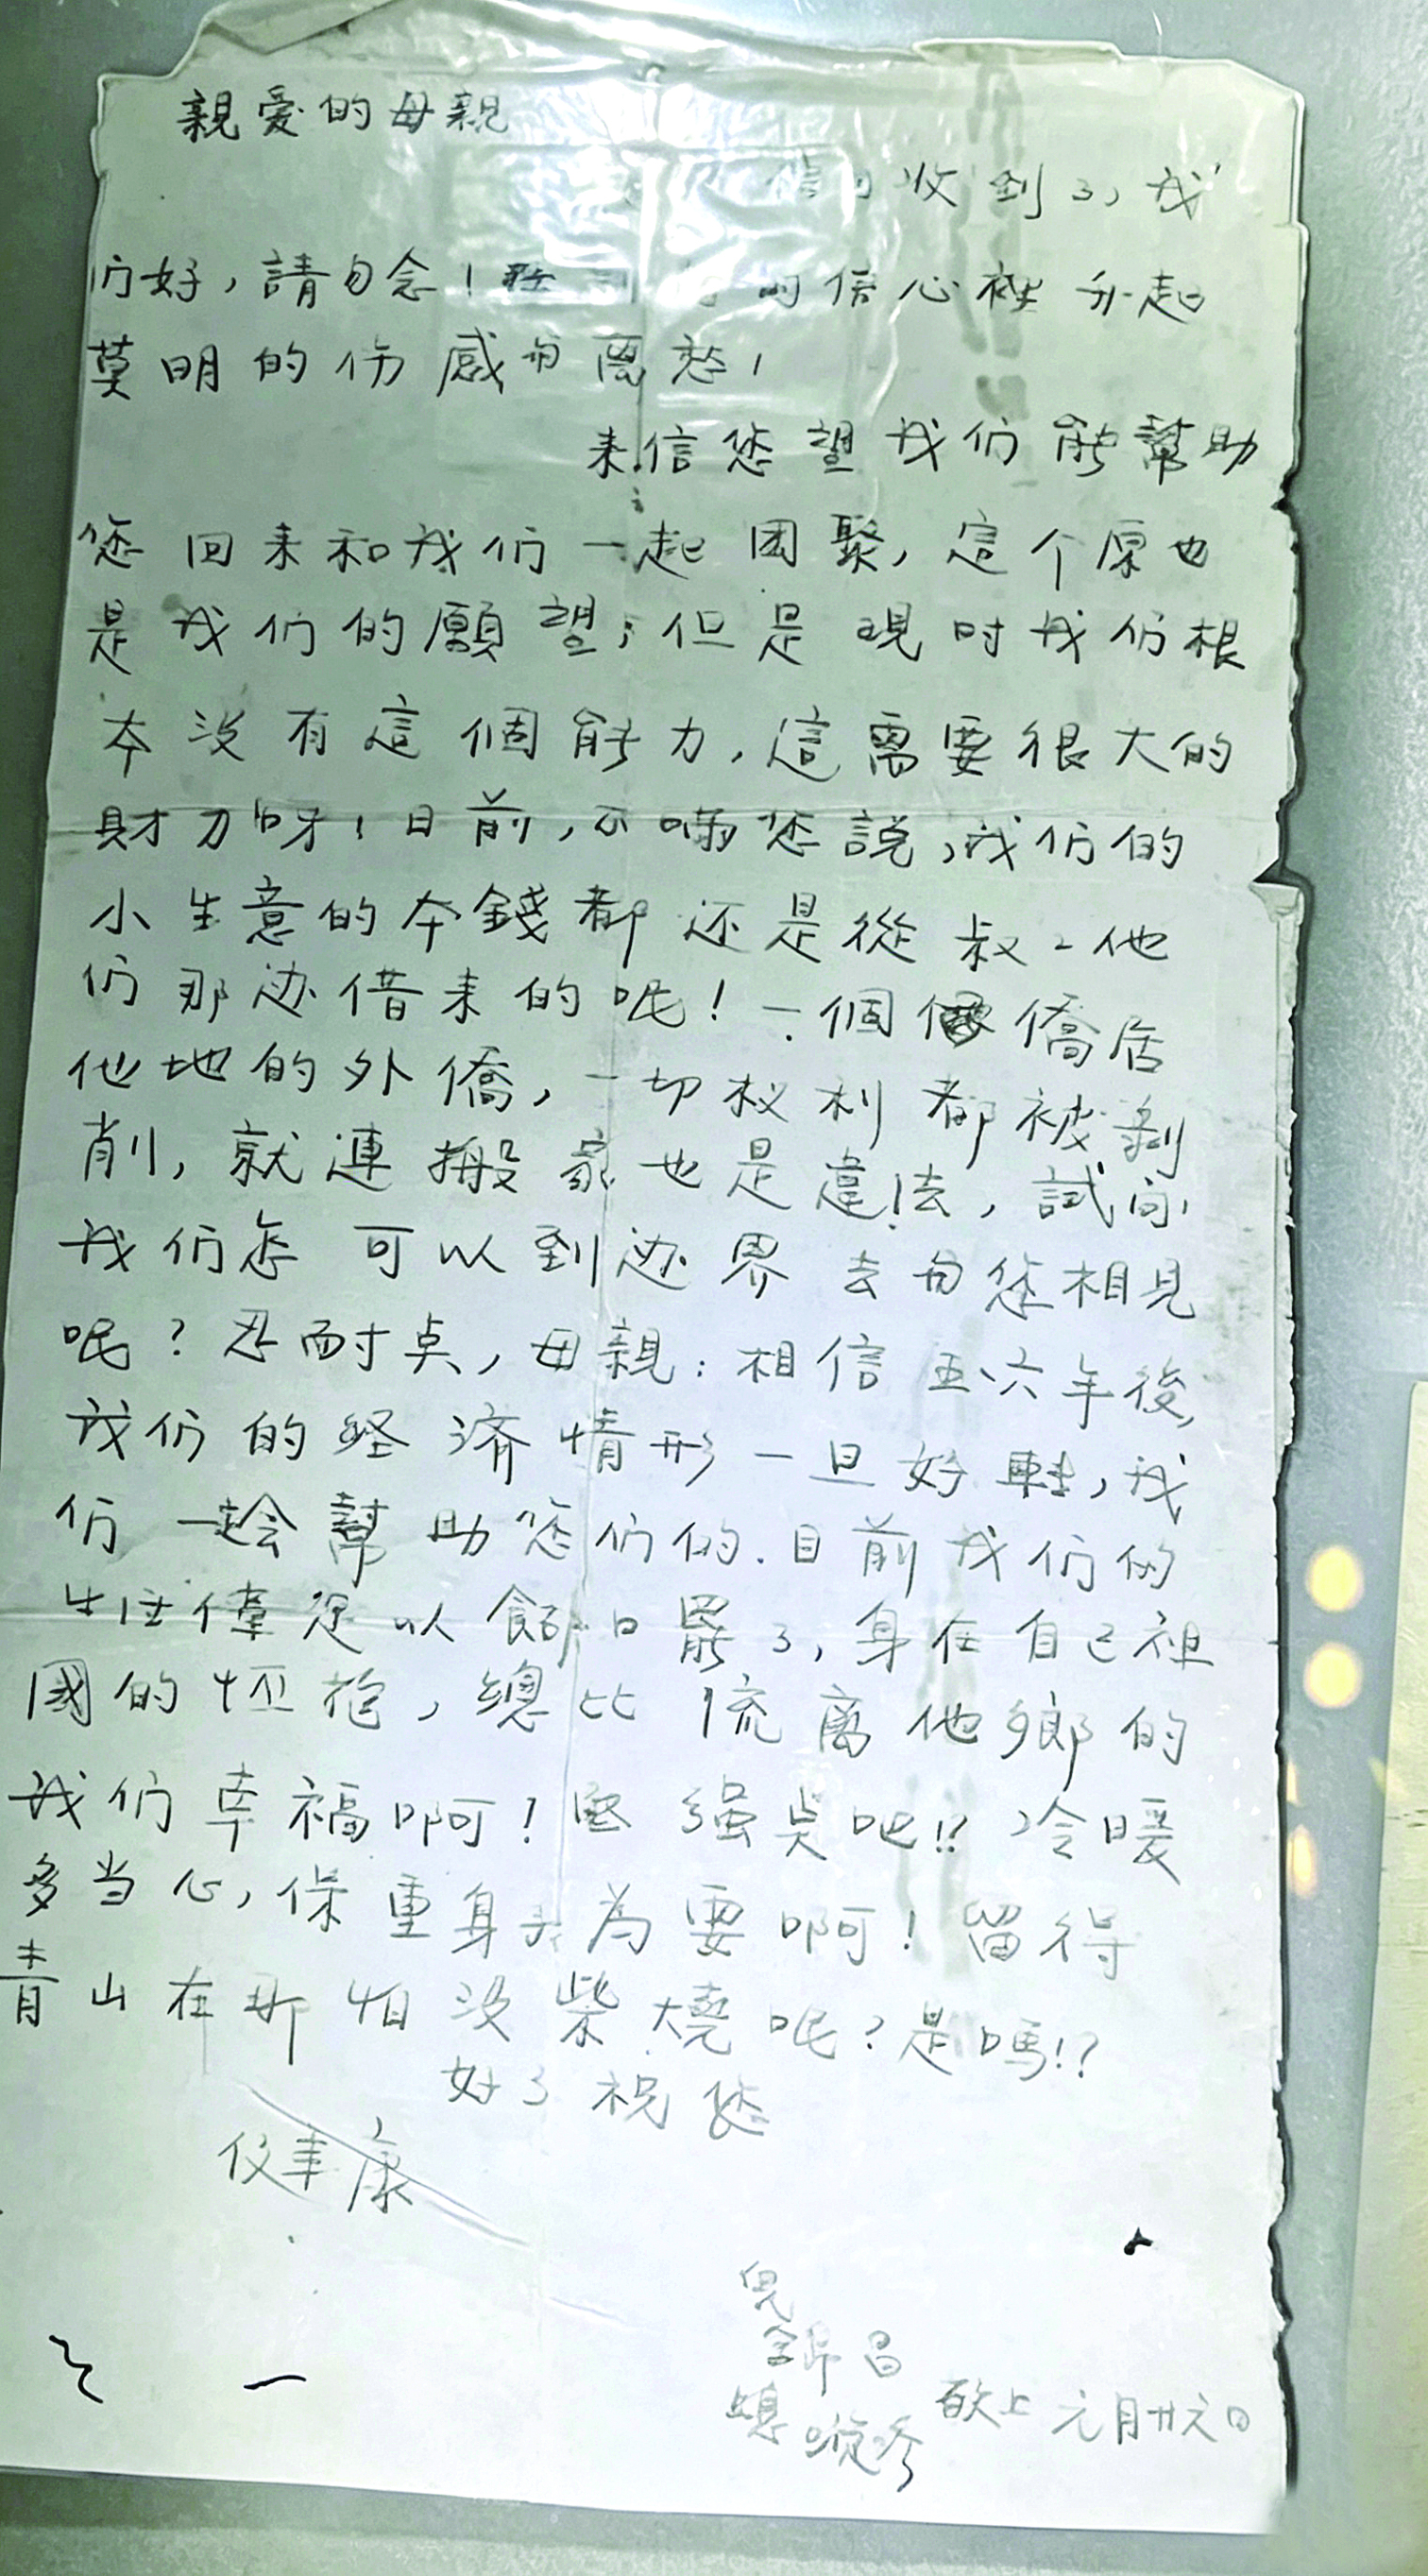 親爱的母親
信 收到了，我
们好，請勿念！ 的信心裡升起
莫明的伤感与离愁！
来信您望我们能幫助
您回来和我们一起团聚，這个原也
是我们的願望；但是現时我们根
本没有這個能力，這需要很大的
財力呀！目前，不瞞您說，我们的
小生意的本錢都还是從叔二他
们那边借来的呢！一個 僑居
他地的外僑，一切权利都被剝
削，就連搬家也是違法，試问
我们怎可以到边界去与您相見
呢？忍耐点，母親：相信五、六年後，
我们的经济情形一旦好転，我
们一定会幫助您们的．目前我们的
生活僅足以餬口罷了，身在自己祖
國的怀抱，總比流离他鄉的
我们幸福啊！堅强点吧！？冷暖
多当心，保重身子為要啊！留得
青山在那怕没柴燒呢？是嗎！？
好了祝您
健康
兒
昌
媳 敬上 元月廿六日